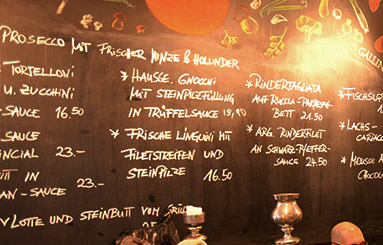 PROSECCO MIT FRISCHER MINZE & HOLUNDER
TORTELLONI
U. ZUCCHINI
-SAUCE 16.50
SAUCE
23.-
IN
-SAUCE 23.-
* HAUSGE. GNOCCHI
MIT STEINPILZFÜLLUNG
IN TRÜFFELSAUCE
* FRISCHE LINGUINI MIT
FILETSTREIFEN UND
STEINPILZE 16.50
* RINDERTAGLIATA
AUF RUCOLA-PARMESAN-
BETT 21.50
* ARG. RINDERFILET
AN SCHWARZ-PFEFFER-
SAUCE 24.50
* FISCHSUP
* LACHS-
* MOUSSE A
LOTTE UND STEINBUTT VOM GRILL